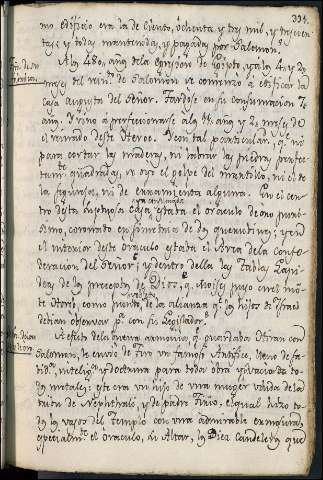 334.
mo edificio era la de ciento, ochenta y tres mil, y trescien
tas; y todas mantenidas, y pagadas por Salomon.
A los 480. años dela egression de Egipto, y a los 4. y
meses del rein.º de Salomon se comenzò a edificar la
casa augusta del Señor. Tardose en su consumacion 7.
años. Y vino a perfeccionarse a los 11. años y 2. meses de
el reinado deste Heroe. Y con tal particular, q.e ni
para cortar las maderas, ni labrar las piedras perfec
tam.te quadradas, se oyó el golpe del martillo, ni el de
la segur, ni de herramienta alguna. En el cen
tro desta sumptuosa casa estaba el oraculo de oro puris
simo, coronado en simetria de dos querubines; y en
el interior deste oraculo estaba el Arca dela confe
deracion del Señor; y dentro della las Tablas Lapi
deas de los preceptos de Dios, q.e Moises puso en el mon
te Horeb, como pacto de la alianza q.e los hijos de Israel
debian observar p.a con su Legislador.
A efecto dela buena armonia, q.e guardaba Hiran con
Salomon, le envió de Tiro un famoso Artifice, lleno de sa
bid.a, inteligᵃ y doctrina para toda obra
dos metales; este era un hijo de una muger viuda de la
tribu de Nephthali, y de padre Tirio, el qual hizo to
dos los vasos del Templo con una admirable
especialm.te el oraculo, el Altar, los Diez Candeleros que